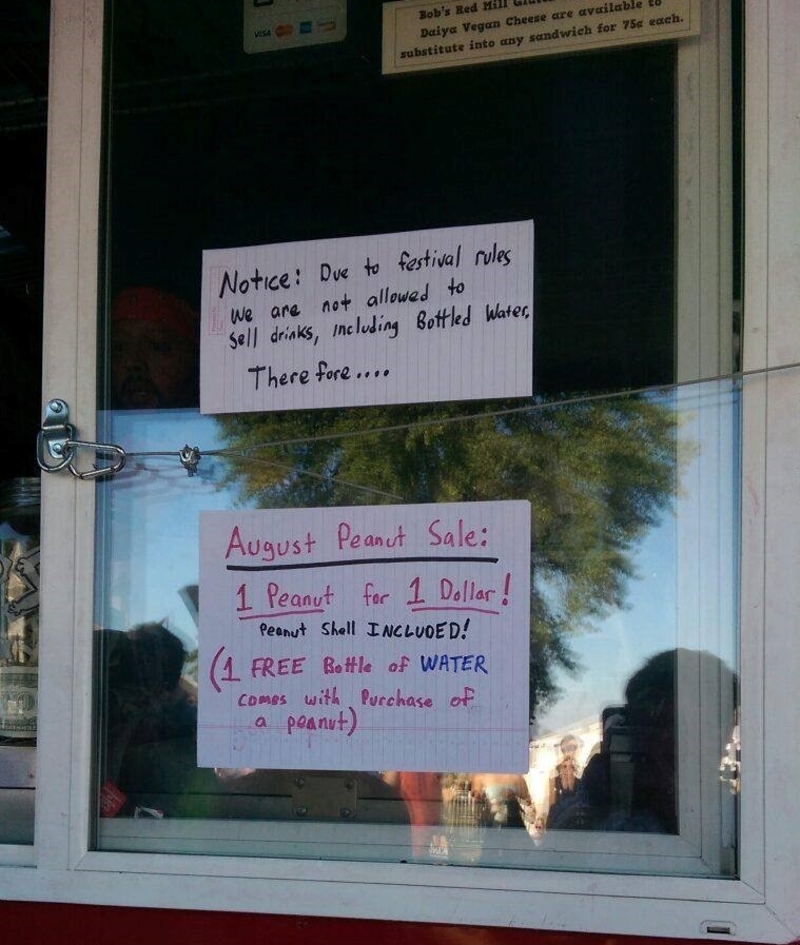 VISA
Bob's Red Mill
Daiya Vegan Cheese are available to
substitute into any sandwich for 75¢ each.
Notice: Due to festival rules
we are not allowed to
sell drinks, including Bottled Water.
Therefore....
August Peanut Sale:
1 Peanut for 1 Dollar!
Peanut Shell INCLUDED!
(1 FREE Bottle of WATER
comes with Purchase of
a peanut)